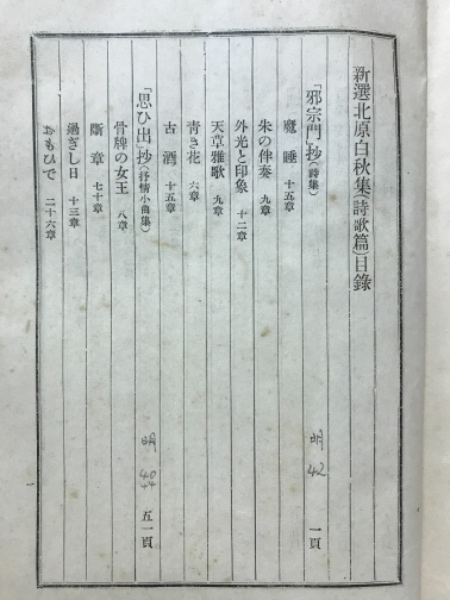 新選北原白秋集(詩歌篇)目錄
「邪宗門」抄(詩集) 明 42 一頁
魔睡 十五章
朱の伴奏 九章
外光と印象 十二章
天草雅歌 九章
靑き花 六章
古酒 十五章
「思ひ出」抄(抒情小曲集) 明 40 44 五一頁
骨牌の女王 八章
斷章 七十章
過ぎし日 十三章
おもひで 二十六章